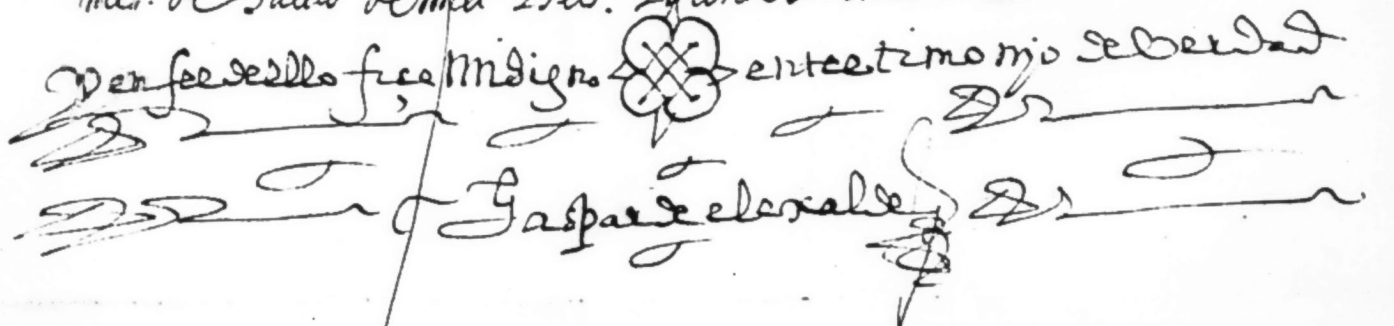 y en fee de ello fiçe mi signo en testimonjo de berdad
Gaspar de elexalde